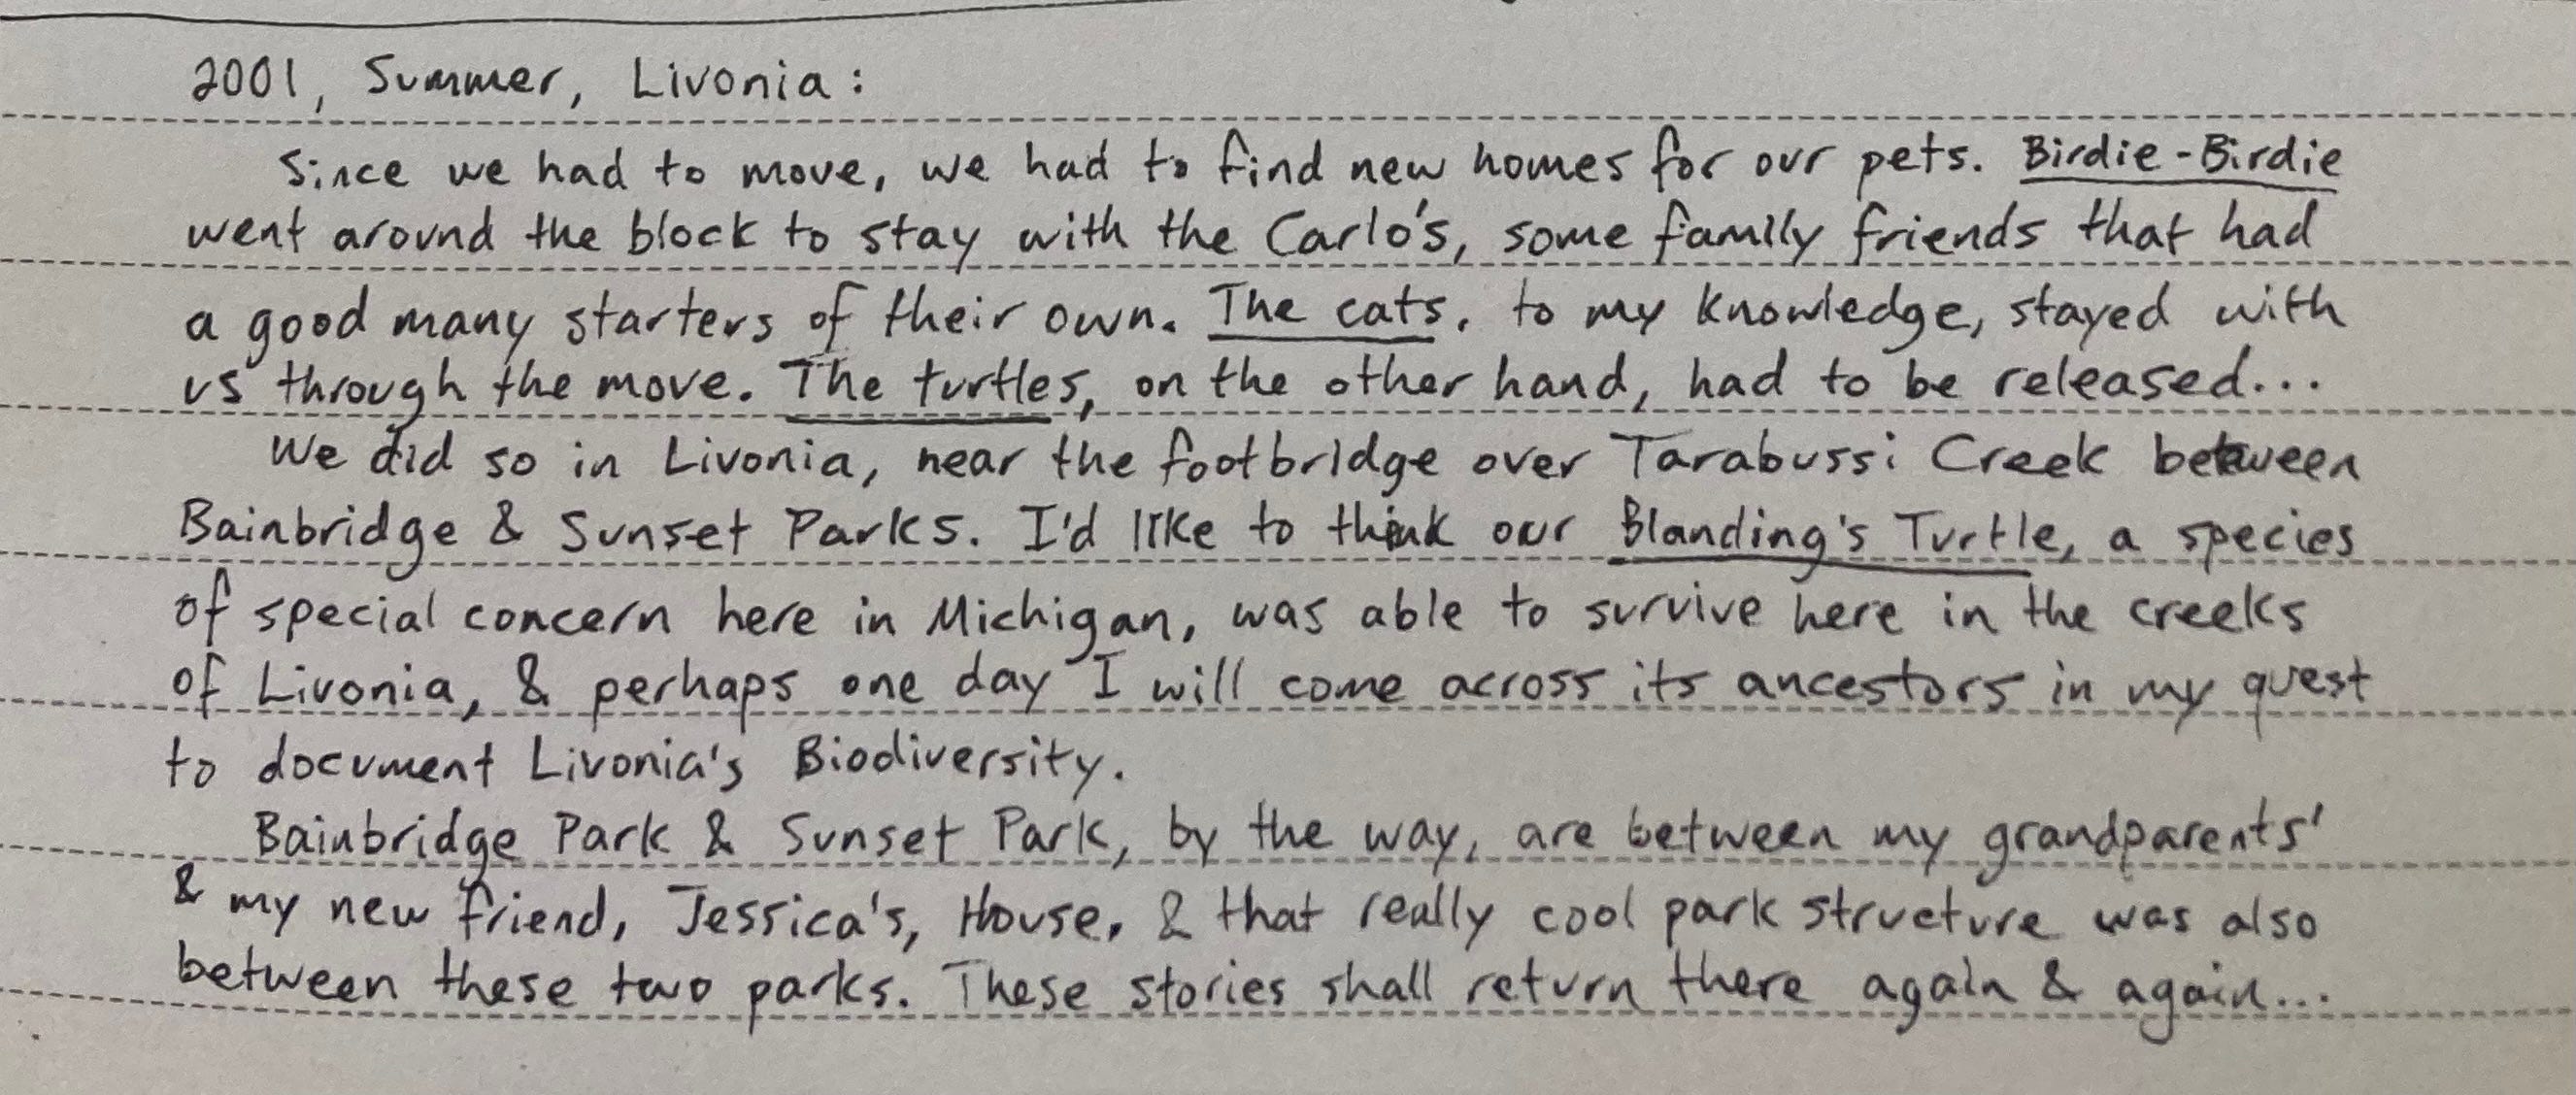 2001, Summer, Livonia:
Since we had to move, we had to find new homes for our pets. Birdie-Birdie
went around the block to stay with the Carlo's, some family friends that had
a good many starters of their own. The cats, to my knowledge, stayed with
us through the move. The turtles, on the other hand, had to be released...
We did so in Livonia, near the footbridge over Tarabussi Creek between
Bainbridge & Sunset Parks. I'd like to think our Blanding's Turtle, a species
of special concern here in Michigan, was able to survive here in the creeks
of Livonia, & perhaps one day I will come across its ancestors in my quest
to document Livonia's Biodiversity.
Bainbridge Park & Sunset Park, by the way, are between my grandparents'
& my new friend, Jessica's, House, & that really cool park structure was also
between these two parks. These stories shall return there again & again...